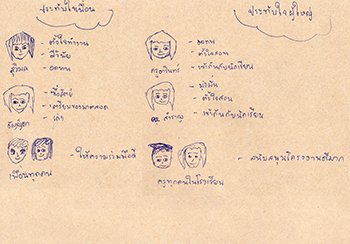 ประทับใจเพื่อน
- ตั้งใจทำงาน
- มีวินัย
- อดทน
สุวิมล
- ซื่อสัตย์
- เตรียมของมาตลอด
- เก่ง
- ให้ความร่วมมือดี
เพื่อนทุกคน
ประทับใจผู้ใหญ่
- อดทน
- ตั้งใจสอน
- เข้ากันกับนักเรียน
- มุ่งมั่น
- ตั้งใจสอน
- เข้ากันกับนักเรียน
- สนับสนุนโครงงานดีมาก
ครูทุกคนในโรงเรียน